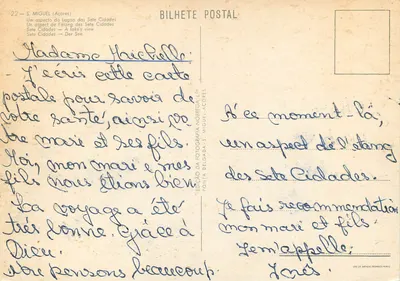 22 - S. MIGUEL (Açores)
Um aspecto da Lagoa das Sete Cidades
Un aspect de l'étang des Sete Cidades
Sete Cidades
Sete Cidades
BILHETE POSTAL
Madame Huichelle.
J'ecris cette carte
postale pour savoir de
votre santé, ainsi, vo
tre mari et ses fils.
Moi, mon mari e mes
fils nous étions bien.
La voyage a été
trés bonne. Grâce à
Dieu.
Notre pensons beaucoup.
A' ce moment-là,
un aspect de l'etang
des Sete Cidades.
Je fais recommendation
mon mari et fils.
Je m'appelle:
Inês.